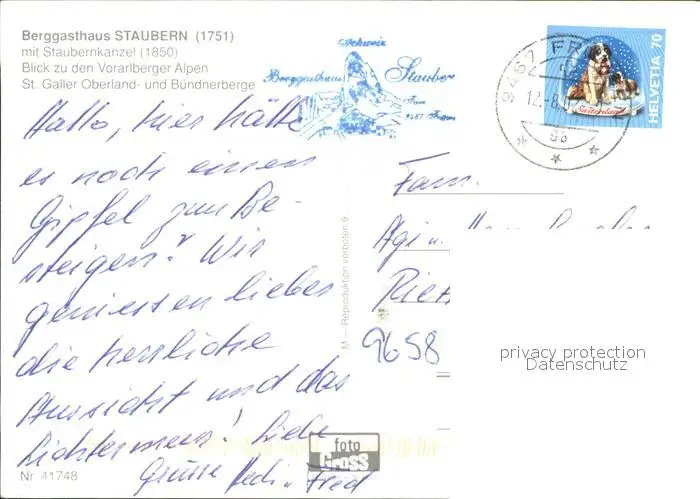 Berggasthaus STAUBERN (1751)
mit Staubernkanzel (1850)
Blick zu den Vorarlberger Alpen
St. Galler Oberland- und Bündnerberge
Schweiz
Berggasthaus Staubern
HELVETIA 70
Switzerland
9462 FR
12.-8.
Hallo, hier hätte
es noch einen
Gipfel zum Be-
steigen? Wir
geniessen lieber
die herrliche
Aussicht und das
Lichtermeer! Liebe
Grüsse Hedi u Fred
Fam.
Agi u.
9658
M – Reproduktion verboten 9
privacy protection
Datenschutz
foto
Gross
Nr 41748